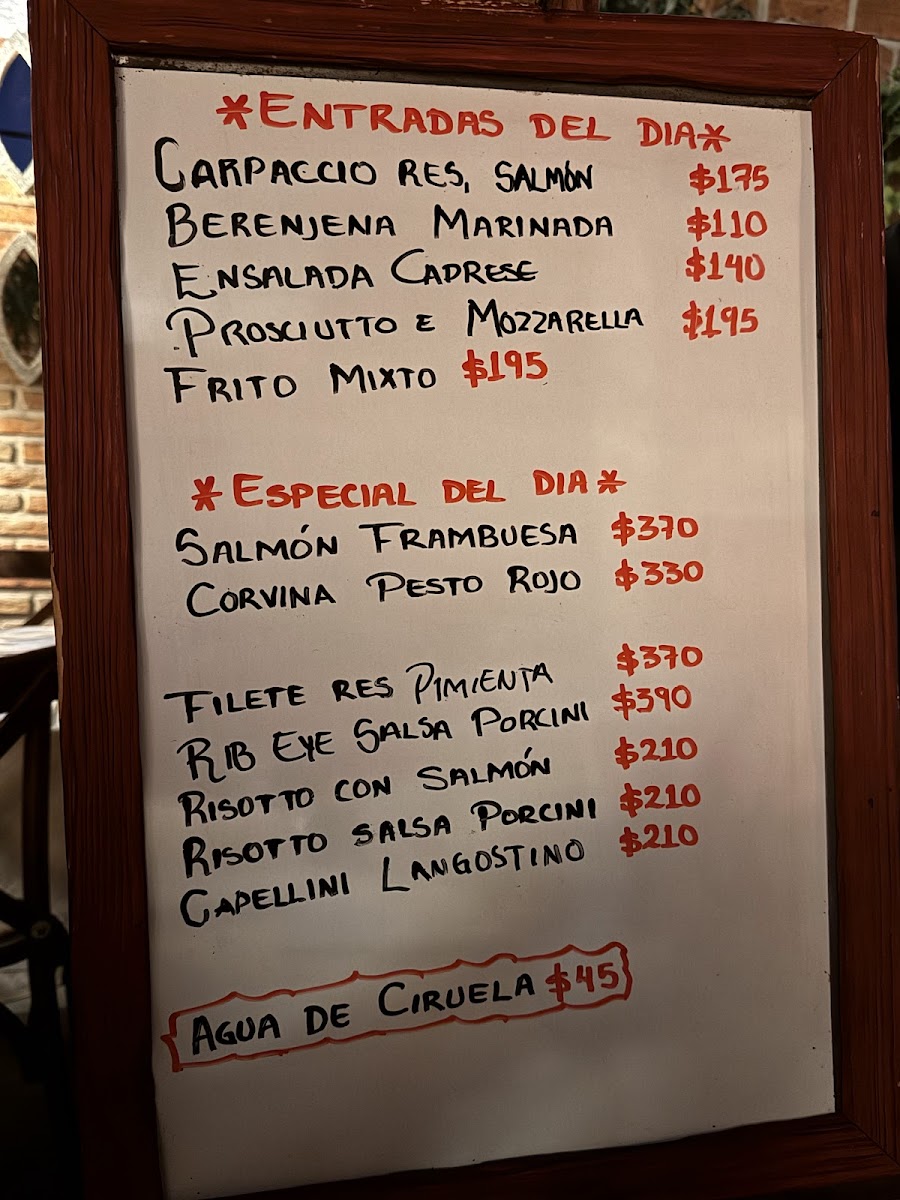 *ENTRADAS DEL DIA*
CARPACCIO RES, SALMÓN $175
BERENJENA MARINADA $110
ENSALADA CAPRESE $140
PROSCIUTTO E MOZZARELLA $195
FRITO MIXTO $195
*ESPECIAL DEL DIA*
SALMÓN FRAMBUESA $370
CORVINA PESTO ROJO $330
FILETE RES PIMIENTA $370
RIB EYE SALSA PORCINI $390
RISOTTO CON SALMÓN $210
RISOTTO SALSA PORCINI $210
CAPELLINI LANGOSTINO $210
AGUA DE CIRUELA $45